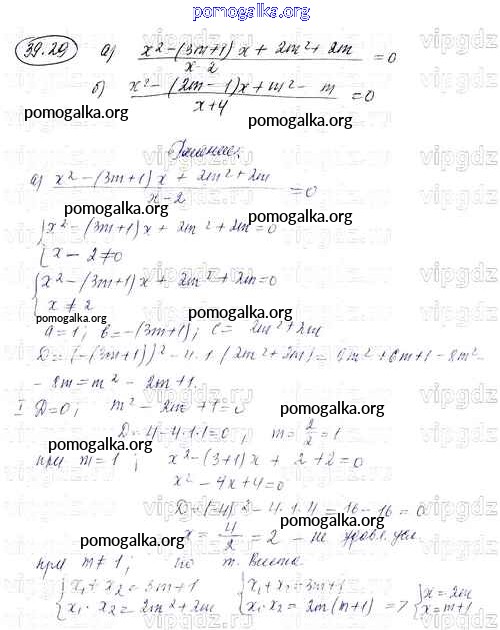 pomogalka.org
39.29 а) x² - (3m+1)x + 2m² + 2m / x-2 = 0
б) x² - (2m-1)x + m² - m / x+4 = 0
pomogalka.org pomogalka.org
Решение:
а) x² - (3m+1)x + 2m² + 2m / x-2 = 0
pomogalka.org pomogalka.org
{ x² - (3m+1)x + 2m² + 2m = 0
{ x - 2 ≠ 0
pomogalka.org pomogalka.org
{ x² - (3m+1)x + 2m² + 2m = 0
{ x ≠ 2
pomogalka.org pomogalka.org
a = 1; b = -(3m+1); c = 2m² + 2m
D = (-(3m+1))² - 4·1·(2m² + 2m) = 9m² + 6m + 1 - 8m² -
- 8m = m² - 2m + 1.
I D=0; m² - 2m + 1 = 0
pomogalka.org
D = 4 - 4·1·1 = 0; m = 2/2 = 1
pomogalka.org
при m = 1; x² - (3+1)x + 2 + 2 = 0
x² - 4x + 4 = 0
D = (-4)² - 4·1·4 = 16 - 16 = 0
pomogalka.org
x = 4/2 = 2 - не удовл. усл.
pomogalka.org
при m ≠ 1; по т. Виета
{ x₁ + x₂ = 3m+1 { x₁ + x₂ = 3m+1 { x = 2m
{ x₁ · x₂ = 2m² + 2m { x₁ · x₂ = 2m(m+1) => { x = m+1
pomogalka.org